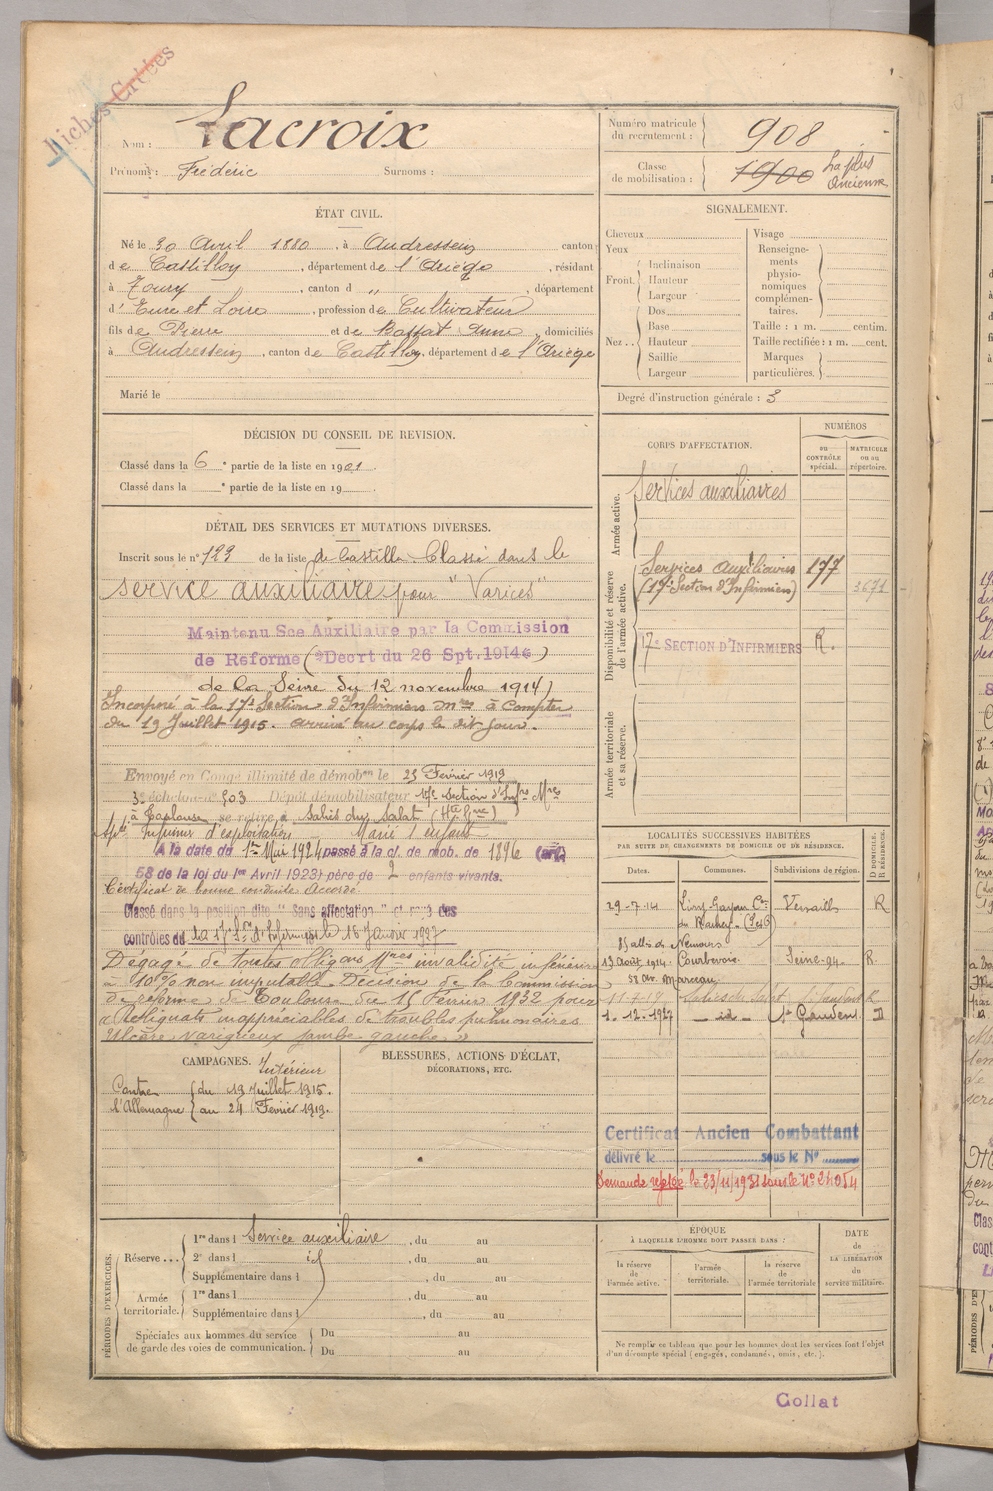 Fiches Créées
Nom : Lacroix
Prénoms : Frédéric Surnoms :
Numéro matricule du recrutement : 908
Classe de mobilisation : 1900 La plus Ancienne
ÉTAT CIVIL.
Né le 30 Avril 1880, à Audressein canton
de Castillon, département de l'Ariège, résidant
à Toury, canton d ", département
d'Eure et Loire, profession de Cultivateur
fils de Pierre et de Anna, domiciliés
à Audressein, canton de Castillon, département de l'Ariège
Marié le
SIGNALEMENT.
Cheveux
Yeux
Front. Inclinaison
Hauteur
Largeur
Nez.. Dos
Base
Hauteur
Saillie
Largeur
Visage
Renseigne-
ments
physio-
nomiques
complémen-
taires.
Taille : 1 m. centim.
Taille rectifiée : 1 m. cent.
Marques
particulières.
Degré d'instruction générale : 3
DÉCISION DU CONSEIL DE REVISION.
Classé dans la 6e partie de la liste en 1901.
Classé dans la e partie de la liste en 19
DÉTAIL DES SERVICES ET MUTATIONS DIVERSES.
Inscrit sous le n° 123 de la liste de Castillon Classé dans le
service auxiliaire pour "Varices"
Maintenu Sce Auxiliaire par la Commission
de Reforme (Decrt du 26 Spt. 1914)
de la Seine du 12 novembre 1914)
Incorporé à la 17e Section d'Infirmiers mres à Compter
du 19 Juillet 1915. arrivé au corps le dit jour.
Envoyé en Congé illimité de démobon le 25 Février 1919
3e échelon n° 503 Dépôt démobilisateur 17e Section d'Infrs Mres
à Toulouse se retire à Salies du Salat (Hte Gne)
Infirmier d'exploitation Marié 1 enfant
A la date du 1er Mai 1924 passé à la cl. de mob. de 1896 (art.
58 de la loi du 1er Avril 1923) père de 2 enfants vivants.
Certificat de bonne conduite Accordé
Classé dans la position dite "Sans affectation" et rayé des
contrôles de la 17e Son d'Infirmiers le 15 Janvier 1927
Dégagé de toutes obligons Mres invalidité inférieure
à 10% non imputable Décision de la Commission
de réforme de Toulouse du 15 Février 1932 pour
"Reliquats inappréciables de troubles pulmonaires
Ulcère variqueux jambe gauche "
CORPS D'AFFECTATION.
NUMÉROS
au CONTRÔLE spécial.
MATRICULE ou au répertoire.
Armée active.
Services auxiliaires
Disponibilité et réserve de l'armée active.
Services Auxiliaires 177
(17e Section d'Infirmiers) 3671
17e SECTION D'INFIRMIERS R.
Armée territoriale et sa réserve.
LOCALITÉS SUCCESSIVES HABITÉES
PAR SUITE DE CHANGEMENTS DE DOMICILE OU DE RÉSIDENCE.
Dates. Communes. Subdivisions de région. D DOMICILE. R RÉSIDENCE.
29-7-14 Livry-Gargan Versailles R
de (S et O)
de Nemours
13 Août 1914 Courbevoie Seine R.
58 av. Marceau
11-7-19 Salies du Salat St Gaudens R
1-12-1927 - id - St Gaudens D
CAMPAGNES.
Intérieur
Contre du 19 Juillet 1915.
l'Allemagne au 24 Février 1919.
BLESSURES, ACTIONS D'ÉCLAT,
DÉCORATIONS, ETC.
Certificat Ancien Combattant
délivré le sous le N°
Demande rejetée le 23/11/1931 sous le N° 24054
PÉRIODES D'EXERCICES.
Réserve... 1re dans l Service auxiliaire, du au
2e dans l id, du au
Supplémentaire dans l, du au
Armée territoriale. 1re dans l, du au
Supplémentaire dans l, du au
Spéciales aux hommes du service
de garde des voies de communication.
Du au
Du au
ÉPOQUE
À LAQUELLE L'HOMME DOIT PASSER DANS :
la réserve de l'armée active.
l'armée territoriale.
la réserve de l'armée territoriale
DATE de LA LIBÉRATION du service militaire.
Ne remplir ce tableau que pour les hommes dont les services font l'objet
d'un décompte spécial (engagés, condamnés, omis, etc.).
Collat